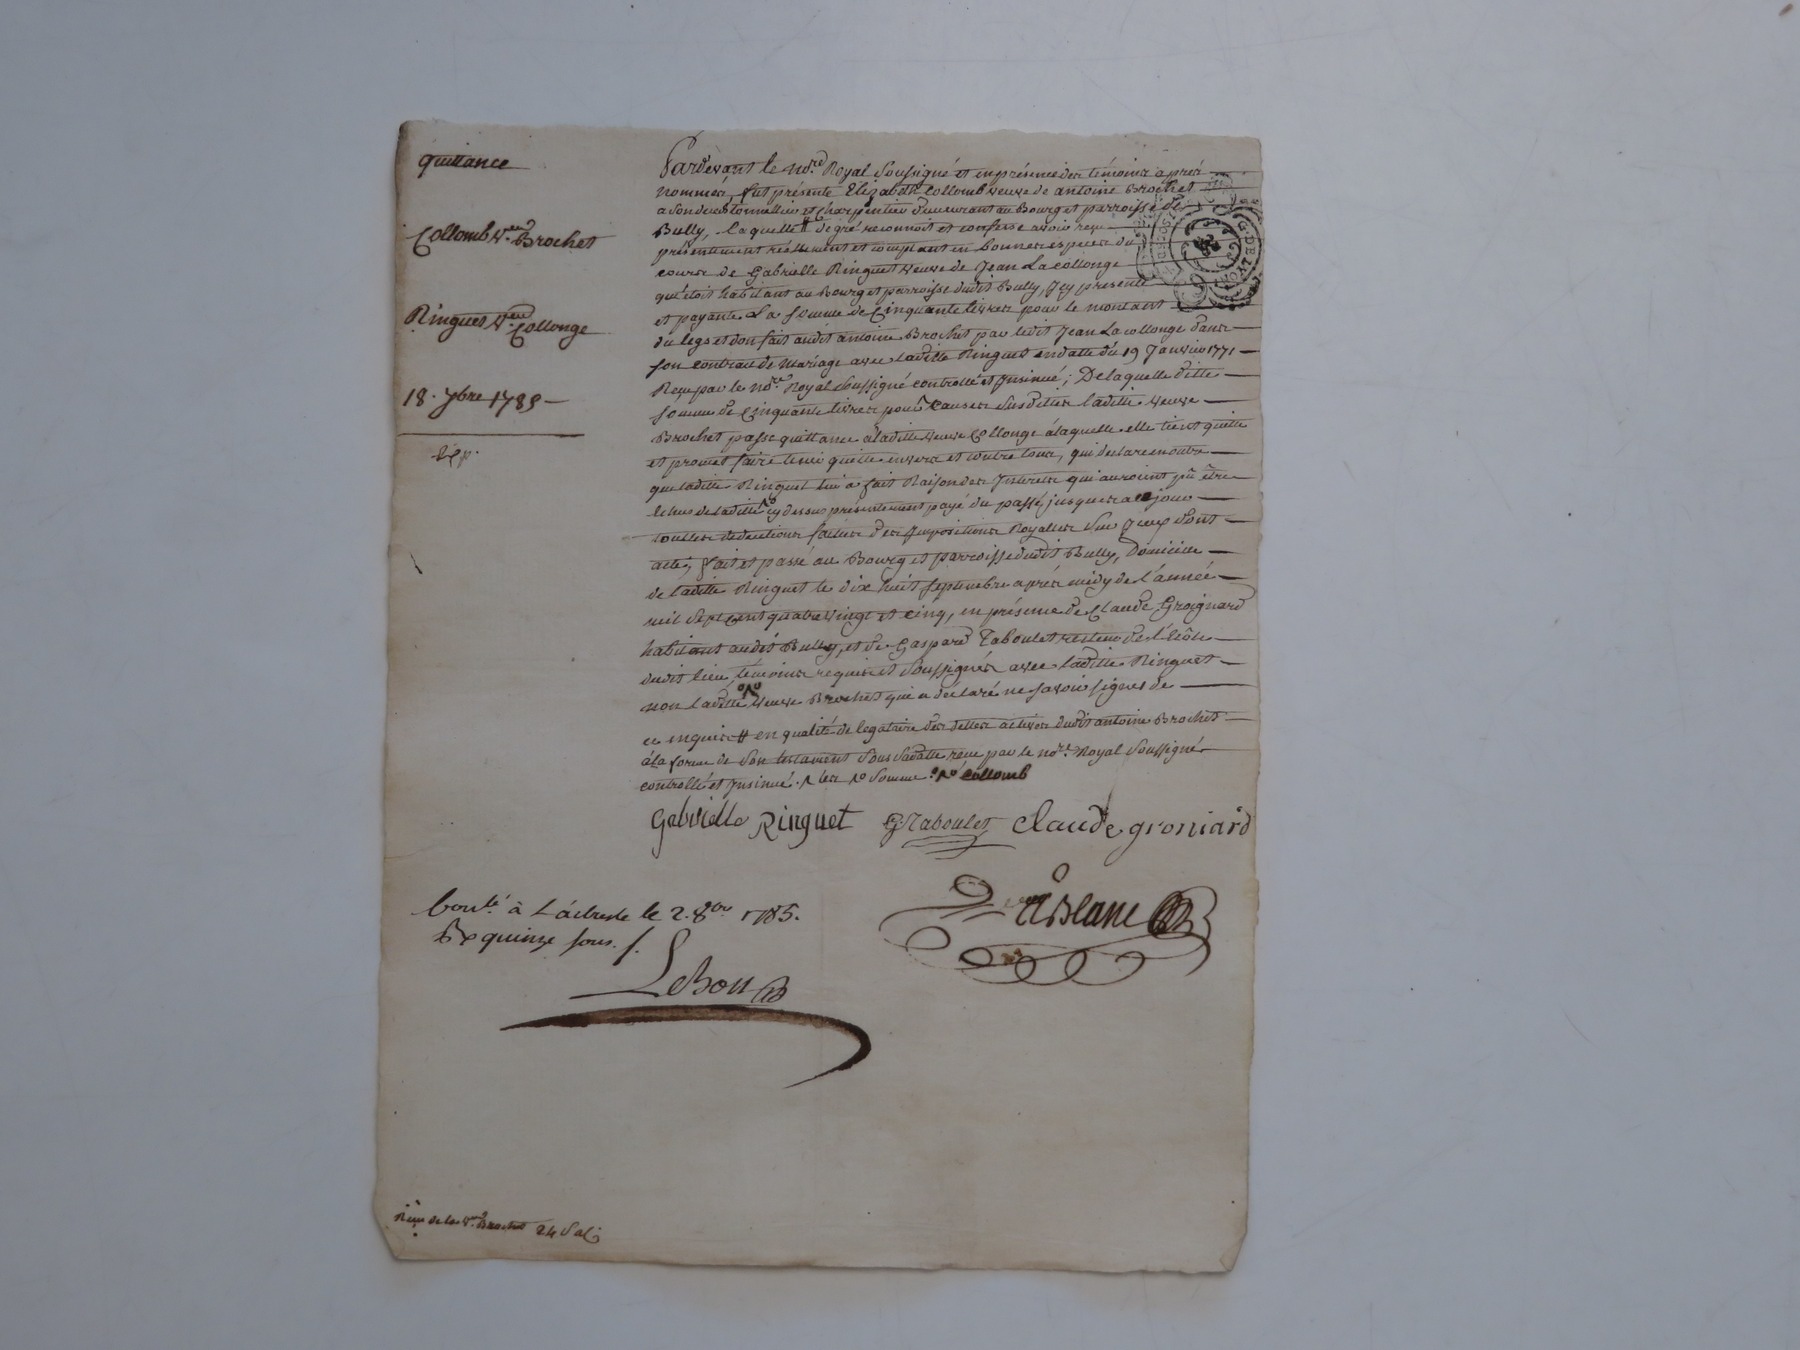 quittance
Collomb Ve. Brochet
Ringuet Ve. Collonge
18. 7bre 1785
Exp.
Pardevant le nore. Royal Soussigné et en présence des témoins aprés
nommés, fut présente Elizabeth Collomb veuve de antoine Brochet
a son deces tonnellier et Charpentier demeurant au Bourg et parroisse de
Bully, laquelle # de gré reconnoit et confesse avoir reçu
présentement réellement et comptant en bonnes especes du
cours de Gabrielle Ringuet veuve de Jean La collonge
qui étoit habitant au Bourg et parroisse dudit Bully, Icy presente
et payante La somme de Cinquante livres pour le montant
du legs et don fait audit antoine Brochet par ledit Jean La collonge dans
son contrat de Mariage avec Laditte Ringuet en datte du 19 Janvier 1771
Reçu par le nore. Royal Soussigné controllé et Insinué; De laquelle ditte
somme de Cinquante livres pour Causes Susdittes laditte veuve
Brochet passe quittance a laditte veuve Collonge a laquelle elle tient quitte
et promet faire tenir quitte envers et contre tous, qui declare en outre
que laditte Ringuet lui a fait Raison des Interets qui auroient pû être
de laditte cy dessus présentement payé du passé jusques a ce jour
touttes deductions faittes des Impositions Royalles sur Iceux dont
acte, fait et passé au Bourg et parroisse dudit Bully, Domicile
de laditte Ringuet le dix huit septembre aprés midy de l'année
mil sept cent quatre vingt et cinq, en présence de Claude Groignard
habitant audit Bully, et de Gaspard Taboulet
dudit lieu, témoins requis et Soussignés avec laditte Ringuet
non laditte veuve Brochet qui a déclaré ne savoir signer de
ce enquise # en qualité de legataire des dettes actives dudit antoine Brochet
à la forme de son testament sous sa datte reçu par le nore. Royal Soussigné
controllé et Insinué. Somme Collomb
Gabrielle Ringuet G Taboulet Claude groniard
G. DE LYON
Contlé. à L'arbresle le 2. 8bre 1785.
Rx quinze sous.
LeBon
Reçu de la Ve. Brochet 24 S